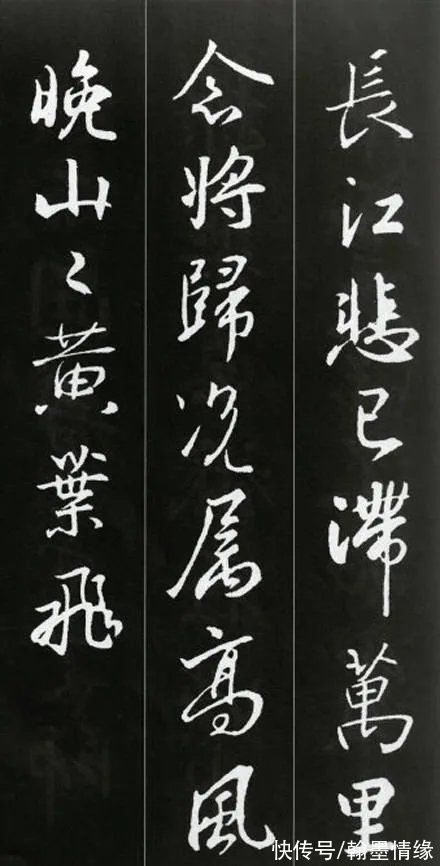 長江悲已滯萬里
念將歸况属高風
晚山〻黄葉飛
快传号/翰墨情缘